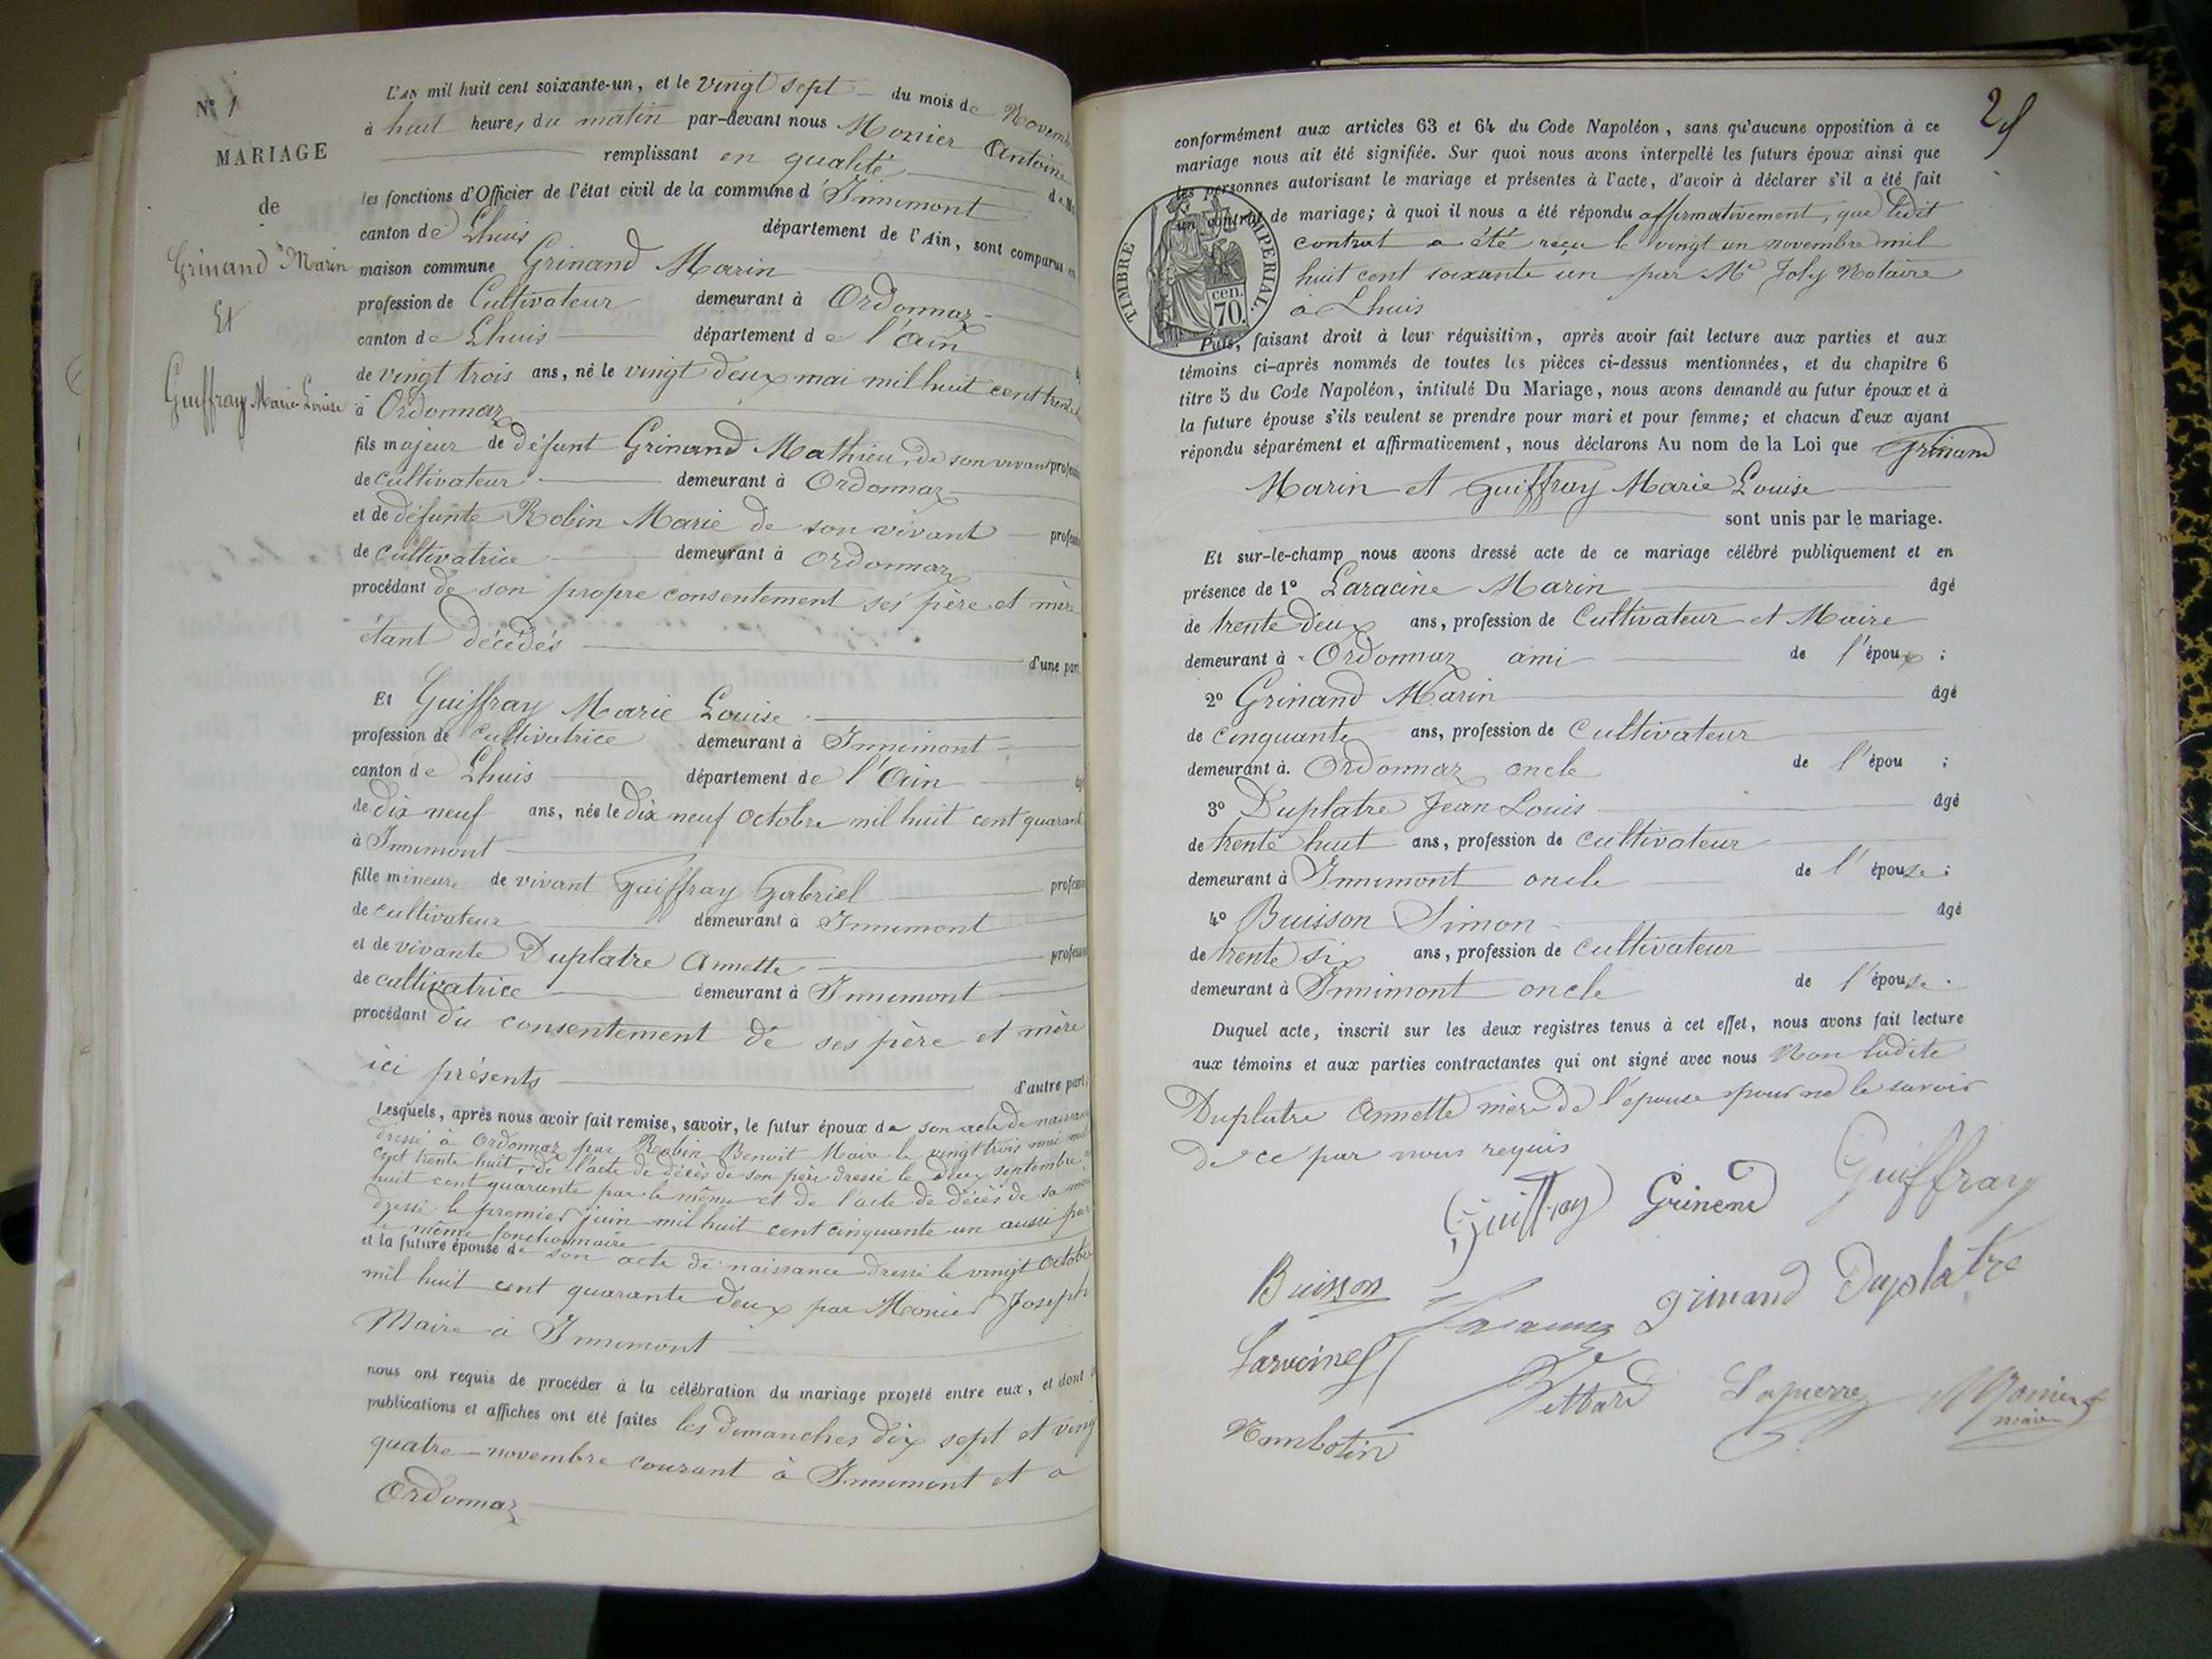 N° 1
MARIAGE
de
Grinand Marin
Et
Guiffray Marie Louise
L'AN mil huit cent soixante-un, et le vingt sept du mois de Novem
à huit heures du matin par-devant nous Monier Antoine
remplissant en qualité
les fonctions d'Officier de l'état civil de la commune d'Innimont
canton de Lhuis département de l'Ain, sont comparus en
maison commune Grinand Marin
profession de Cultivateur demeurant à Ordonnaz
canton de Lhuis département de l'Ain
de vingt trois ans, né le vingt deux mai mil huit cent trente
à Ordonnaz
fils majeur de défunt Grinand Mathieu, de son vivant profession
de cultivateur demeurant à Ordonnaz
et de défunte Robin Marie de son vivant profession
de cultivatrice demeurant à Ordonnaz
procédant de son propre consentement ses père et mère
étant décédés
d'une part
Et Guiffray Marie Louise
profession de Cultivatrice demeurant à Innimont
canton de Lhuis département de l'Ain
de dix neuf ans, née le dix neuf octobre mil huit cent quarante
à Innimont
fille mineure de vivant Guiffray Gabriel profession
de cultivateur demeurant à Innimont
et de vivante Duplatre Annette profession
de cultivatrice demeurant à Innimont
procédant du consentement de ses père et mère
ici présents
d'autre part
Lesquels, après nous avoir fait remise, savoir, le futur époux de son acte de naissance
dressé à Ordonnaz par Robin Benoit Maire le vingt trois mai mil
cent trente huit, de l'acte de décès de son père dressé le deux septembre
huit cent quarante par le même et de l'acte de décès de sa mère
dressé le premier juin mil huit cent cinquante un aussi par
le même fonctionnaire
et la future épouse de son acte de naissance dressé le vingt octobre
mil huit cent quarante deux par Monier Joseph
Maire à Innimont
nous ont requis de procéder à la célébration du mariage projeté entre eux, et dont
publications et affiches ont été faites les dimanches dix sept et vingt
quatre novembre courant à Innimont et a
Ordonnaz
conformément aux articles 63 et 64 du Code Napoléon, sans qu'aucune opposition à ce
mariage nous ait été signifiée. Sur quoi nous avons interpellé les futurs époux ainsi que
les personnes autorisant le mariage et présentes à l'acte, d'avoir à déclarer s'il a été fait
un contrat de mariage; à quoi il nous a été répondu affirmativement, que ledit
contrat a été reçu le vingt un novembre mil
huit cent soixante un par Me Joly Notaire
à Lhuis
TIMBRE IMPERIAL.
cen.
70.
Puis, faisant droit à leur réquisition, après avoir fait lecture aux parties et aux
témoins ci-après nommés de toutes les pièces ci-dessus mentionnées, et du chapitre 6
titre 5 du Code Napoléon, intitulé Du Mariage, nous avons demandé au futur époux et à
la future épouse s'ils veulent se prendre pour mari et pour femme; et chacun d'eux ayant
répondu séparément et affirmativement, nous déclarons Au nom de la Loi que Grinand
Marin et Guiffray Marie Louise
sont unis par le mariage.
Et sur-le-champ nous avons dressé acte de ce mariage célébré publiquement et en
présence de 1° Laracine Marin âgé
de trente deux ans, profession de Cultivateur et Maire
demeurant à Ordonnaz ami de l'époux ;
2° Grinand Marin âgé
de cinquante ans, profession de Cultivateur
demeurant à Ordonnaz oncle de l'épou ;
3° Duplatre Jean Louis âgé
de trente huit ans, profession de cultivateur
demeurant à Innimont oncle de l'épouse ;
4° Buisson Simon âgé
de trente six ans, profession de cultivateur
demeurant à Innimont oncle de l'épouse.
Duquel acte, inscrit sur les deux registres tenus à cet effet, nous avons fait lecture
aux témoins et aux parties contractantes qui ont signé avec nous Non ladite
Duplatre Annette mère de l'épouse pour ne le savoir
de ce par nous requis
Guiffray Grinand Guiffray
Buisson grinand Duplatre
Laracine
Vettard Lapierre Monier
maire
Nambotin